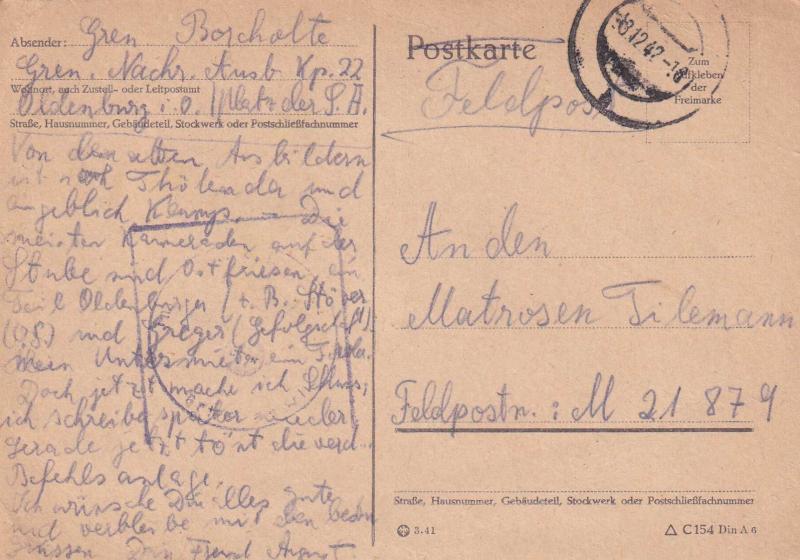 Absender: Gren Borcholte
Gren. Nachr. Ausb. Kp. 22
Wohnort, auch Zustell- oder Leitpostamt
Oldenburg i. O. / Platz der S.A.
Straße, Hausnummer, Gebäudeteil, Stockwerk oder Postschließfachnummer
Von den alten Ausbildern
ist noch Thölen da und
angeblich Kamps. Die
meisten Kameraden auf der
Stube sind Ostfriesen, ein
Teil Oldenburger (z. B. Stöver
(OS) und Greger (Gefolgschaft)
Mein Untermieter ein
Doch jetzt mache ich Schluss,
ich schreibe später wieder.
Gerade jetzt tönt die verd...
Befehlsanlage.
Ich wünsche Dir alles gute
und verbleibe mit den besten
Grüssen Dein Freund August
Postkarte
Feldpost
8.12.42.-18
Zum
Aufkleben
der
Freimarke
An den
Matrosen Tilemann
Feldpostn.: M 21 879
Straße, Hausnummer, Gebäudeteil, Stockwerk oder Postschließfachnummer
3.41
C 154 Din A 6